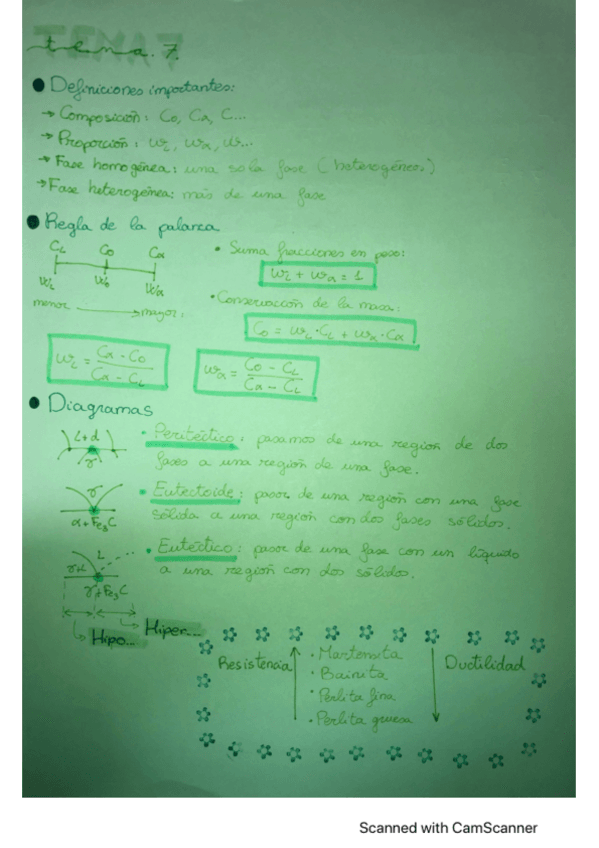 TEMA 7
tema. 7.
Definiciones importantes:
→ Composición: Co, Cα, C...
→ Proporción: WL, Wα, W...
→ Fase homogénea: una sola fase (heterogéneos)
→ Fase heterogénea: más de una fase
Regla de la palanca
CL Co Cα
WL Wo Wα
menor → mayor:
• Suma fracciones en peso:
WL + Wα = 1
• Conservación de la masa:
Co = WL · CL + Wα · Cα
WL = Cα - Co / Cα - CL
Wα = Co - CL / Cα - CL
Diagramas
L+d
γ
• Peritéctico: pasamos de una región de dos
fases a una región de una fase.
γ
α+Fe3C
• Eutectoide: pasar de una región con una fase
sólida a una región con dos fases sólidos.
L
γ+L
γ+Fe3C
• Eutéctico: pasar de una fase con un líquido
a una región con dos sólidos.
Hipo... Hiper...
Resistencia
• Martensita
• Bainita
• Perlita fina
• Perlita gruesa
Ductilidad
Scanned with CamScanner